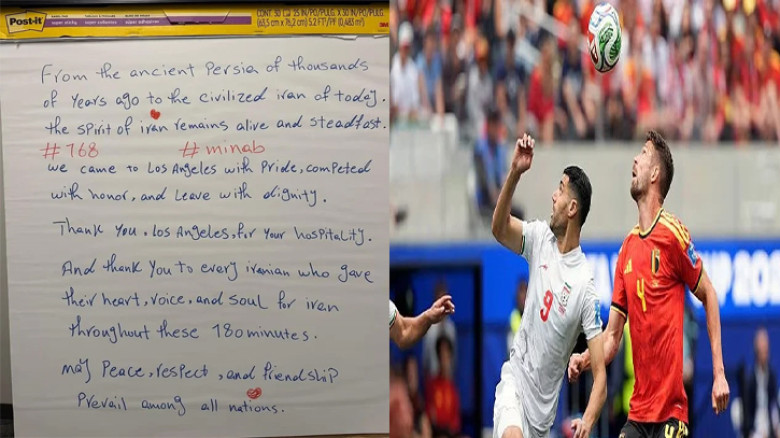 Post-it
super sticky
CONT. 30
25 IN/PO/PULG. X 30 IN/PO/PULG.
(63,5 cm x 76,2 cm) 5.2 FT²/PI²
3M
From the ancient Persia of thousands
of years ago to the civilized iran of today.
the spirit of iran remains alive and steadfast.
#168 #minab
we came to Los Angeles with Pride, competed
with honor, and Leave with dignity.
Thank you, Los Angeles, for your hospitality.
And thank you to every iranian who gave
their heart, voice, and soul for iran
throughout these 180 minutes.
may Peace, respect, and friendship
Prevail among all nations.
9
4
4